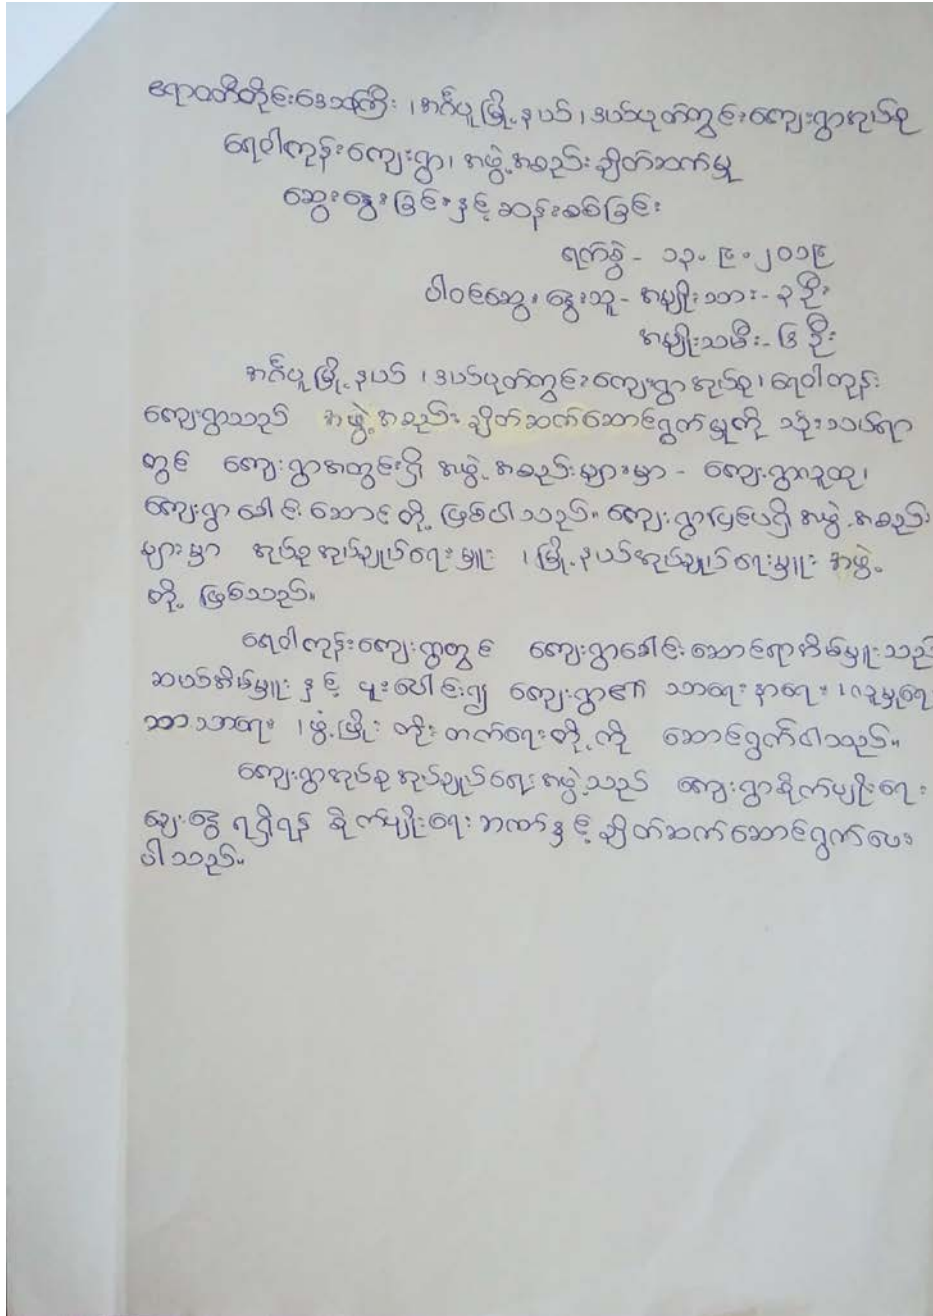 ဧရာဝတီတိုင်းဒေသကြီး ၊ အင်္ဂပူမြို့နယ် ၊ ဒယ်ပုတ်ကွင်းကျေးရွာအုပ်စု
ရေဝါကုန်းကျေးရွာ၊ အဖွဲ့အစည်းချိတ်ဆက်မှု
ဆွေးနွေးခြင်းနှင့် ဆန်းစစ်ခြင်း
ရက်စွဲ - ၁၃.၉.၂၀၁၉
ပါဝင်ဆွေးနွေးသူ - အမျိုးသား - ၃ ဦး
အမျိုးသမီး - ဒြ ဦး
အင်္ဂပူမြို့နယ် ၊ ဒယ်ပုတ်ကွင်းကျေးရွာအုပ်စု၊ ရေဝါကုန်း
ကျေးရွာသည် အဖွဲ့အစည်းချိတ်ဆက်ဆောင်ရွက်မှုကို သုံးသပ်ရာ
တွင် ကျေးရွာအတွင်းရှိ အဖွဲ့အစည်းများမှာ - ကျေးရွာလူထု၊
ကျေးရွာခေါင်းဆောင်တို့ ဖြစ်ပါသည်။ ကျေးရွာပြင်ပရှိ အဖွဲ့အစည်း
များမှာ အုပ်စုအုပ်ချုပ်ရေးမှူး ၊ မြို့နယ်အုပ်ချုပ်ရေးမှူး အဖွဲ့
တို့ ဖြစ်သည်။
ရေဝါကုန်းကျေးရွာတွင် ကျေးရွာခေါင်းဆောင်ရာအိမ်မှူးသည်
ဆယ်အိမ်မှူးနှင့် ပူးပေါင်း၍ ကျေးရွာ၏ သာရေးနာရေး ၊ လူမှုရေး
ဘာသာရေး ၊ ဖွံ့ဖြိုးတိုးတက်ရေးတို့ကို ဆောင်ရွက်ပါသည်။
ကျေးရွာအုပ်စုအုပ်ချုပ်ရေးအဖွဲ့သည် ကျေးရွာစိုက်ပျိုးရေး
ချေးငွေ ရရှိရန် စိုက်ပျိုးရေးဘဏ်နှင့် ချိတ်ဆက်ဆောင်ရွက်ပေး
ပါသည်။